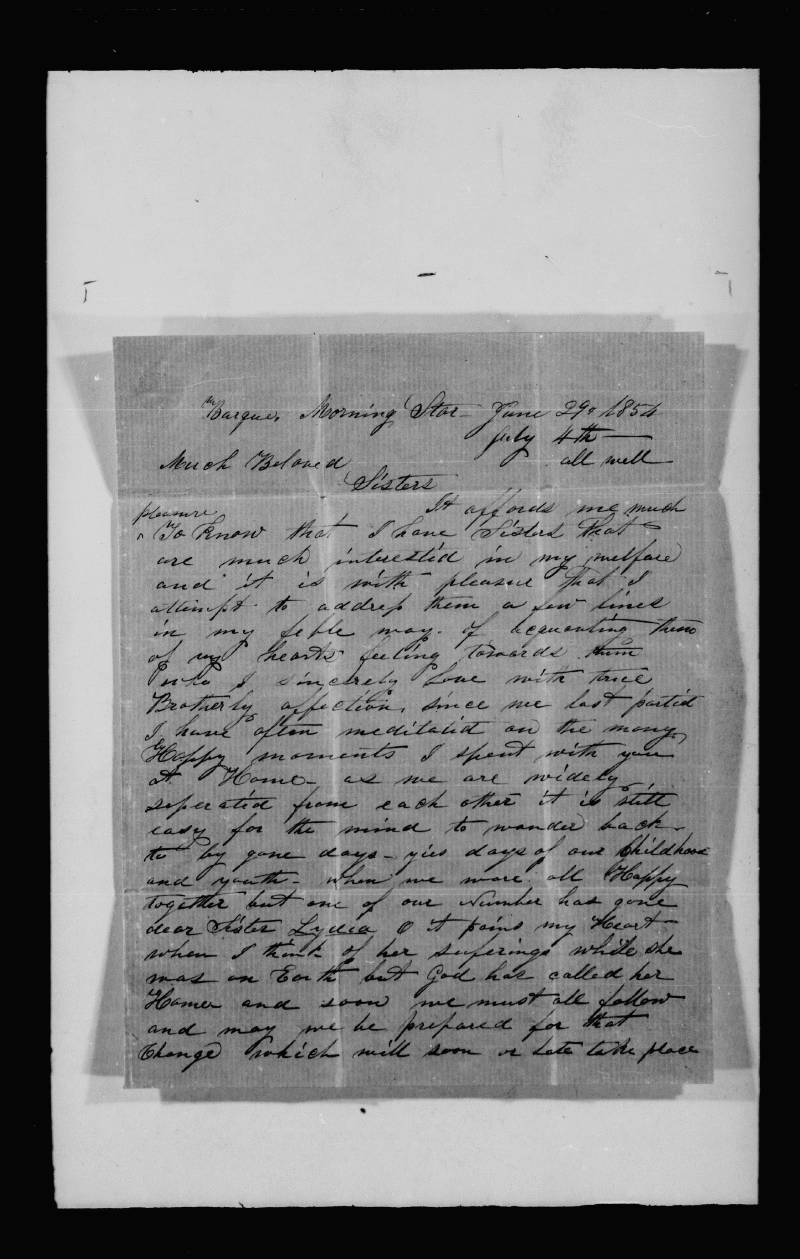 Barque, Morning Star - June 29, 1854
July 4th
Much Beloved all well
Sisters
It affords me much
pleasure
To Know that I have Sisters that
are much interestid in my welfare
and it is with pleasure that I
attimpt to address them a few lines
in my feble way. of acquanting them
of my hearts feeling towards them
who I sincerely Love with true
Brotherly affection, since we last partid
I have often meditatid on the many
Happy moments I spent with you
At Home - as we are widely
seperatid from each other it is still
easy for the mind to wander back
to by gone days - yes days of our Childhood
and youth - when we ware all Happy
together but one of our Number has gone
dear Sister Lydia O it pains my Heart
when I think of her suferings while she
was on Earth but God has called her
Home and soon we must all follow
and may we be prepared for that
Change which will soon or late take place